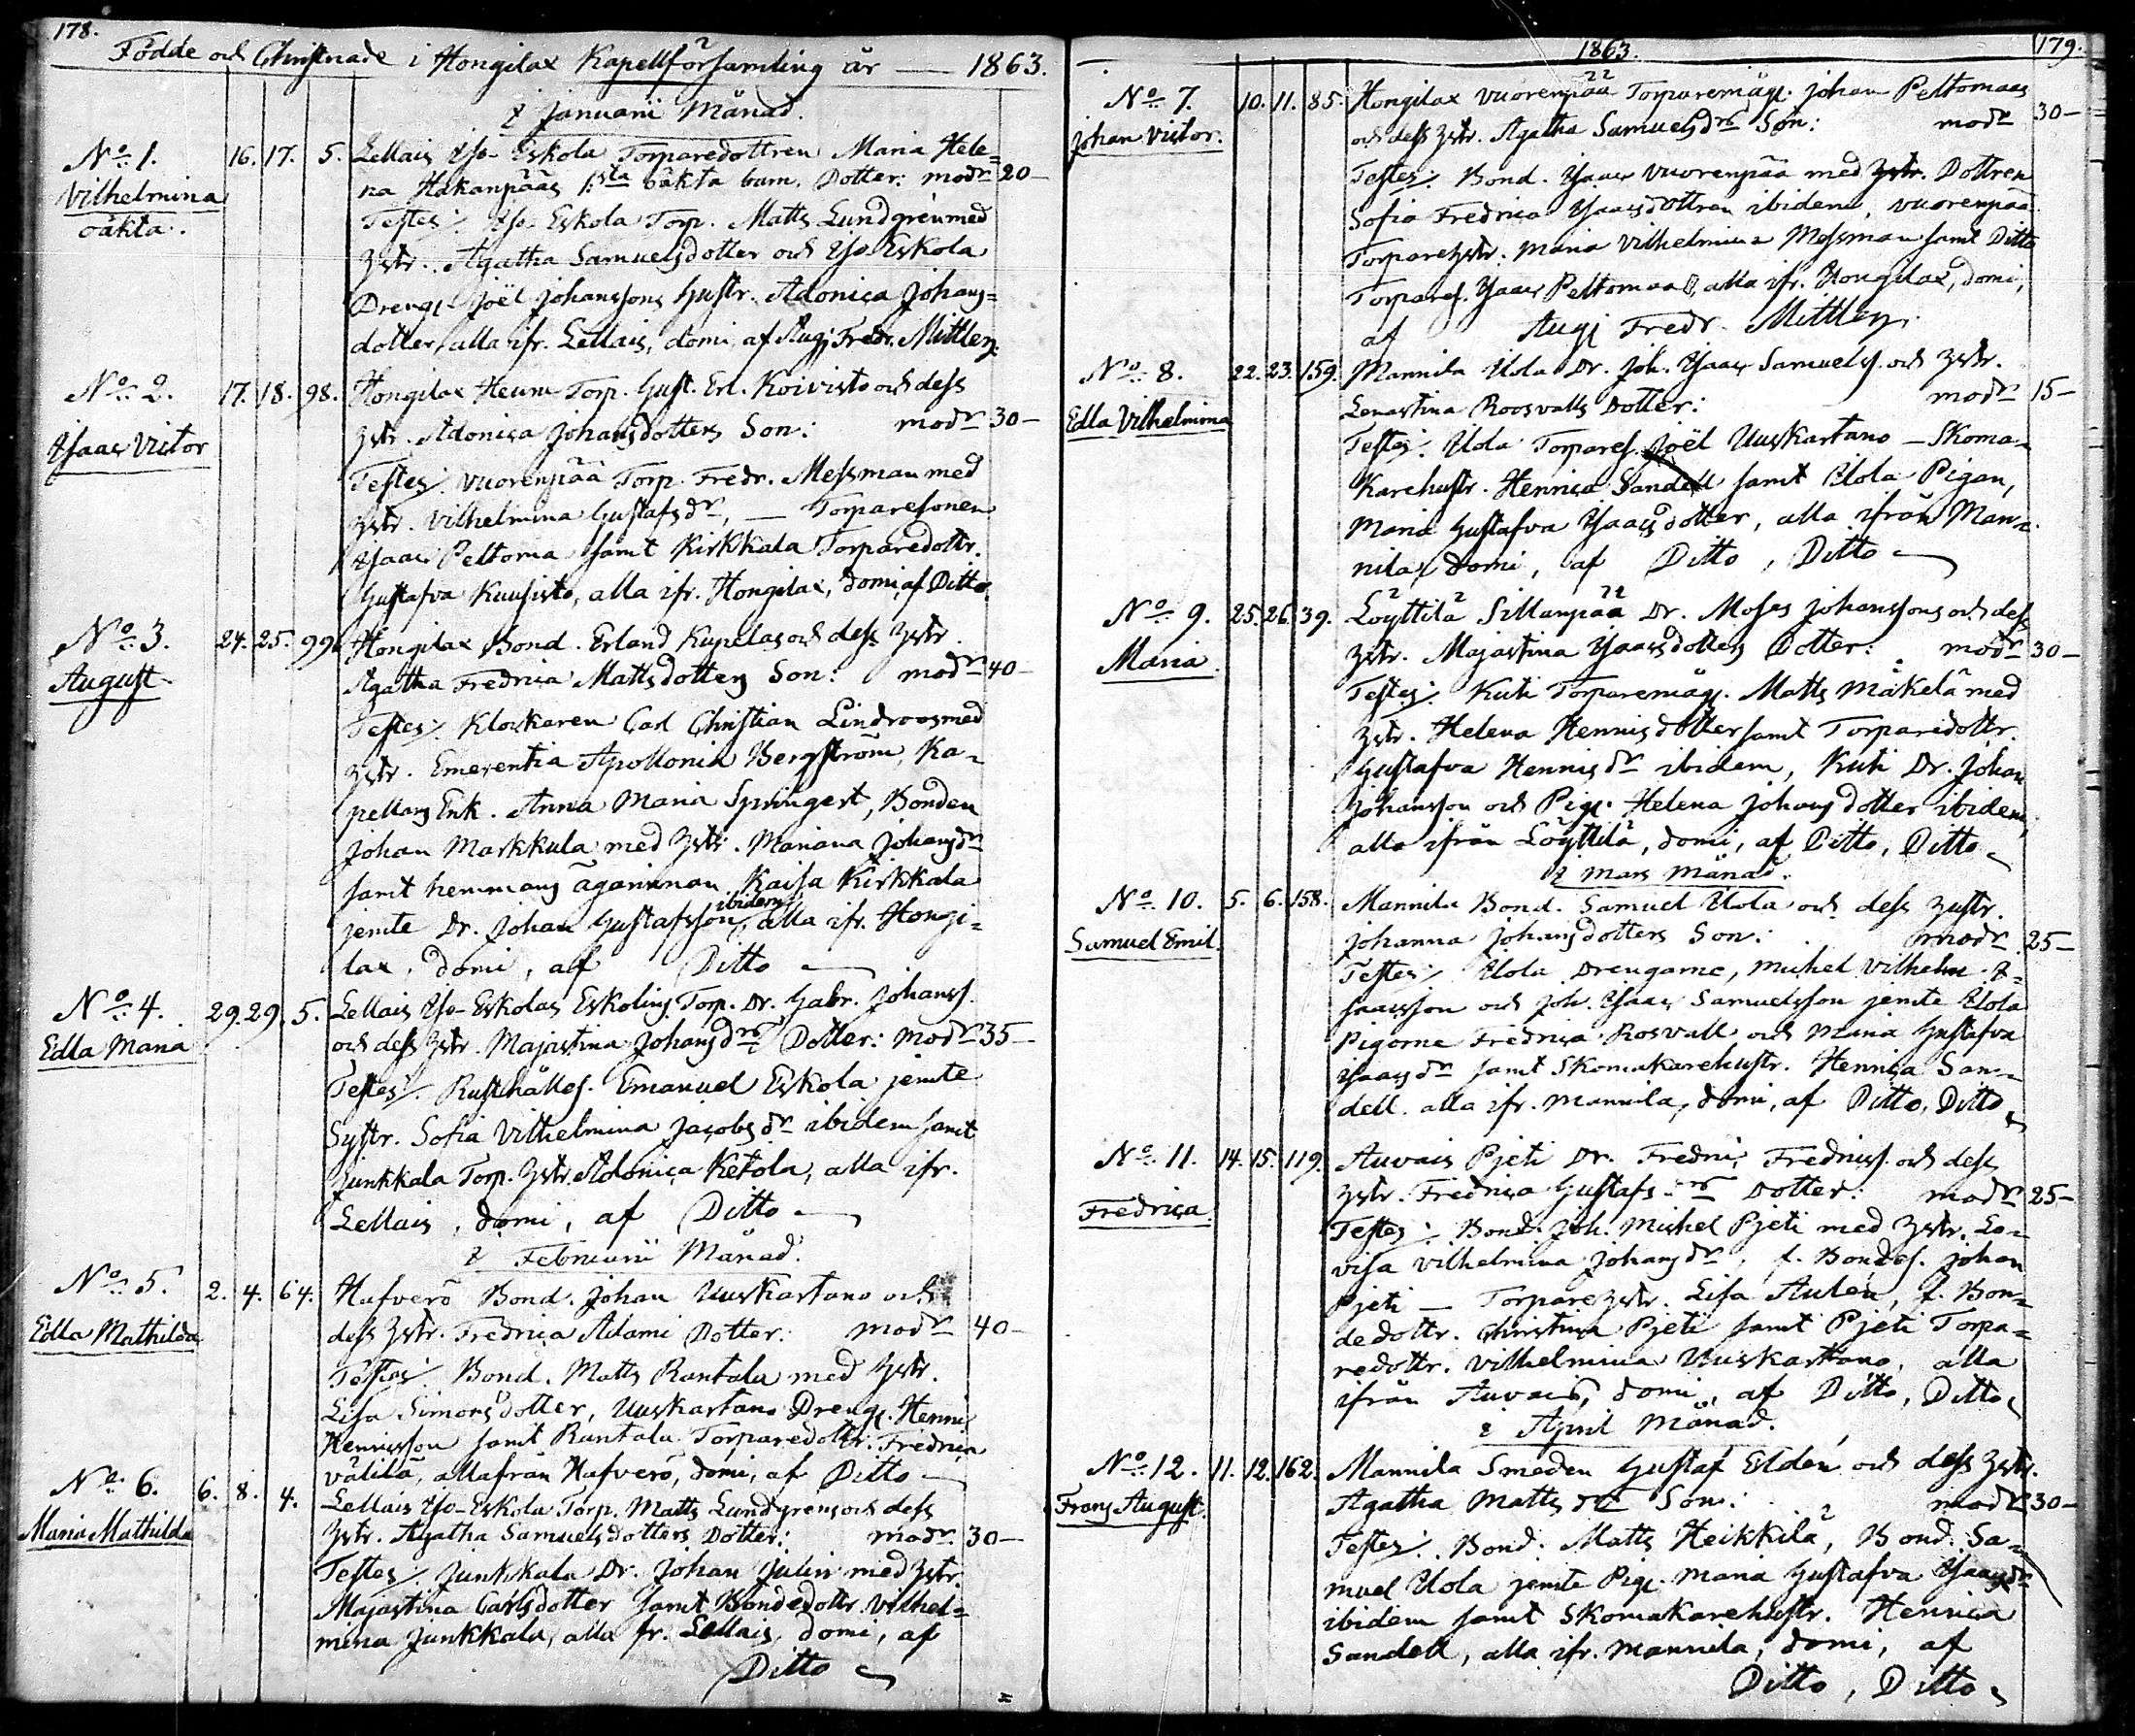 178.
Födde och Christnade i Hongilax Kapellförsamling år — 1863.
i Januarii Månad.
No 1. 16. 17. 5. Lellais Iso-Eskola Torparedottren Maria Hele=
Vilhelmina na Hakanpääs 1:sta oäkta barn. Dotter: modr 20—
oäkta. Testes: Iso Eskola Torp. Matts Lundgren med
hstr. Agatha Samuelsdotter och Iso Eskola
Drengs Joël Johanssons hustr. Adonica Johans=
dotter, alla ifr. Lellais, domi, af Aug: Fredr. Mittler.
No 2. 17. 18. 98. Hongilax Heurn Torp. Gust. Erl. Koivisto och dess
Isaac Victor hstr. Adonica Johansdotters Son: modr 30—
Testes: Vuorenpää Torp. Fredr. Messman med
hstr. Vilhelmina Gustafsdr, — Torparesonen
Isaac Peltoma samt Kirkkala Torparedottr.
Gustafva Kuusisto, alla ifr. Hongilax, domi, af Ditto.
No 3. 24. 25. 99. Hongilax Bond. Erland Kupilas och dess hstr.
August Agatha Fredrica Mattsdotters Son: modr 40—
Testes: Klockaren Carl Christian Lindroos med
hstr. Emerentia Apollonia Bergström, Ka=
pellans Enk. Anna Maria Springert, Bonden
Johan Markkula med hstr. Mariana Johansdr
samt hemmans ägarinnan Kaisa Kirkkala
jemte Dr. Johan Gustafsson ibidem, alla ifr. Hongi=
lax, domi, af Ditto
No 4. 29. 29. 5. Lellais Iso-Eskolas Eskolins Torp. Dr. Gabr. Johanss.
Edla Maria och dess hstr. Majastina Johansdrs Dotter: modr 35—
Testes: Rusthålles. Emanuel Eskola jemte
Systr. Sofia Vilhelmina Jacobsdr ibidem samt
Junkkala Torp. hstr. Adonica Ketola, alla ifr.
Lellais, domi, af Ditto
i Februarii Månad.
No 5. 2. 4. 64. Hafverö Bond. Johan Uuskartano och
Edla Mathilda dess hstr. Fredrica Adami Dotter: modr 40—
Testes: Bond. Matts Rantala med hstr.
Lisa Simonsdotter, Uuskartano Drengs. Henric
Henricsson samt Rantala Torparedottr. Fredrica
Välilä, alla från Hafverö, domi, af Ditto
No 6. 6. 8. 4. Lellais Iso-Eskola Torp. Matts Lundgrens och dess
Maria Mathilda hstr. Agatha Samuelsdotters Dotter: modr 30—
Testes: Junkkala Dr. Johan Julin med hstr.
Majastina Carlsdotter samt Bondedottr. Vilhel=
mina Junkkala, alla fr. Lellais, domi, af
Ditto
1863. 179.
No 7. 10. 11. 85. Hongilax Vuorenpää Torparemågs. Johan Peltomaas
Johan Victor. och dess hstr. Agatha Samuelsdrs Son: modr 30—
Testes: Bond. Isaac Vuorenpää med hstr. Dottren
Sofia Fredrica Isaacsdottren ibidem, Vuorenpää
Torparehstr. Maria Vilhelmina Messman samt Ditto
Torpares. Isaac Peltomaa, alla ifr. Hongilax, domi,
af Aug: Fredr. Mittler.
No 8. 22. 23. 159. Mannila Uola Dr. Joh. Isaac Samuelss. och hstr.
Edla Vilhelmina Lenastina Roosvalls Dotter: modr 15—
Testes: Uola Torpares. Joël Uuskartano — Skoma=
karehustr. Henrica Sandell samt Uola Pigan,
Maria Gustafva Isaacsdotter, alla ifrån Man=
nila, domi, af Ditto, Ditto
No 9. 25. 26. 39. Löyttilä Sillanpää Dr. Moses Johanssons och dess
Maria. hstr. Majastina Isaacsdotters Dotter: modr 30—
Testes: Kuti Torparemågs. Matts Mäkelä med
hstr. Helena Henricsdotter samt Torparedottr.
Gustafva Henricsdr ibidem, Kuti Dr. Johan
Johansson och Pigs. Helena Johansdotter ibidem,
alla ifrån Löyttilä, domi, af Ditto, Ditto
i Mars Månad.
No 10. 5. 6. 158. Mannila Bond. Samuel Uola och dess hustr.
Samuel Emil. Johanna Johansdotters Son: modr 25—
Testes: Uola Drengarne, Michel Vilhelm I=
saacsson och Joh. Isaac Samuelsson jemte Uola
Pigorne Fredrica Rosvall och Maria Gustafva
Isaacsdr samt Skomakarehustr. Henrica San=
dell. alla ifr. Mannila, domi, af Ditto, Ditto
No 11. 14. 15. 119. Auvais Pjeti Dr. Fredric Fredricss. och dess
Fredrica. hstr. Fredrica Gustafsdrs Dotter: modr 25—
Testes: Bond. Joh. Michel Pjeti med hstr. Lo=
visa Vilhelmina Johansdr, f. Bondes. Johan
Pjeti — Torparehstr. Lisa Aulen, f. Bon=
dedottr. Christina Pjeti samt Pjeti Torpa=
redottr. Vilhelmina Uuskartano, alla
ifrån Auvais, domi, af Ditto, Ditto
i April Månad.
No 12. 11. 12. 162. Mannila Smeden Gustaf Eldén och dess hstr.
Frans August. Agatha Mattsdrs Son: modr 30—
Testes: Bond. Matts Heikkilä, Bond. Sa=
muel Uola jemte Pigs. Maria Gustafva Isaacsdr
ibidem samt Skomakarehustr. Henrica
Sandell, alla ifr. Mannila, domi, af
Ditto, Ditto